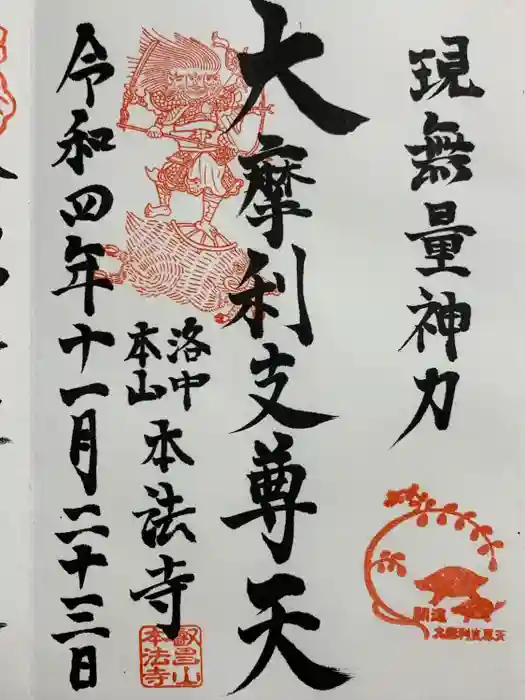 現無量神力
大摩利支尊天
洛中
本山
本法寺
令和四年十一月二十三日
叡昌山
本法寺
開運
大摩利支尊天